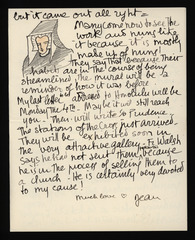 but it came out all right —
Many come now to see the
work and nuns like
it because it is mostly
made up of nuns!
They say that because their
habits are in the course of being
streamlined the mural will be a
reminder of how it was before.
My last letter addressed to Honolulu will be
Monday the 4th. Maybe it will still reach
you. Then will write to Prudence.
The stations of the Cross just arrived.
They will be exhibited soon in
the very attractive gallery. Fr. Walsh
says he had not sent them because
he is in the process of selling them to
a church. He is certainly very devoted
to my cause!
Much love
Jean